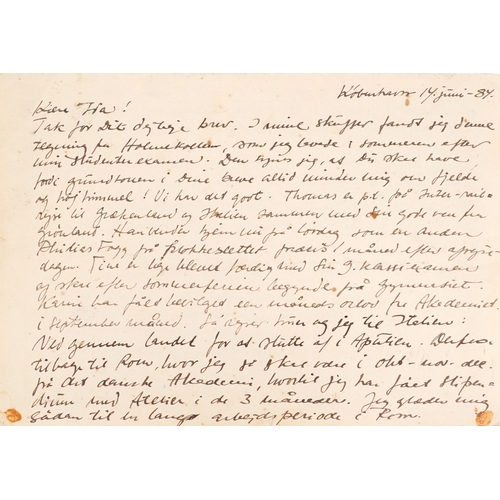 København 14. juni - 84.
Kære Ida!
Tak for Dit dejlige brev. I mine skuffer fandt jeg denne
tegning fra Holmenkollen, som jeg lavede i sommeren efter
min studentereksamen. Den synes jeg, at Du skal have,
fordi grundtonen i Dine breve altid minder mig om fjelde
og høj himmel! Vi har det godt. Thomas er p.t. på Inter-rail-
rejse til Grækenland og Italien sammen med din gode ven fra
Grønland. Han vender hjem nu på lørdag som en anden
Phidias Fogg på 1 måned efter afrejse-
dagen. Tine er lige blevet færdig med sin 9. klasses eksamen
og skal efter sommerferien begynde på gymnasiet.
Karin har fået bevilget en måneds orlov fra Akademiet
i september måned. Så rejser hun og jeg til Italien:
Ned gennem landet for at slutte af i Apulien. Derfra
tilbage til Rom, hvor jeg så skal være i okt-nov-dec.
på det danske Akademi, hvortil jeg har fået stipen-
dium med Atelier i de 3 måneder. Jeg glæder mig
sådan til en lang arbejdsperiode i Rom.